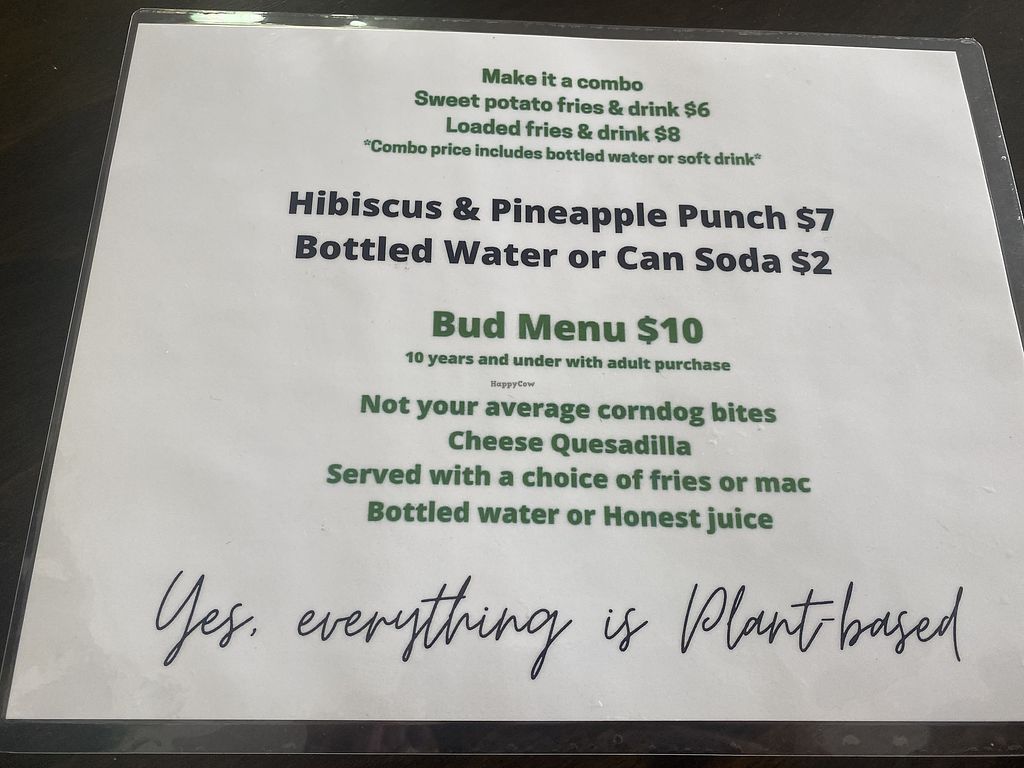 Make it a combo
Sweet potato fries & drink $6
Loaded fries & drink $8
*Combo price includes bottled water or soft drink*
Hibiscus & Pineapple Punch $7
Bottled Water or Can Soda $2
Bud Menu $10
10 years and under with adult purchase
HappyCow
Not your average corndog bites
Cheese Quesadilla
Served with a choice of fries or mac
Bottled water or Honest juice
Yes, everything is Plant-based